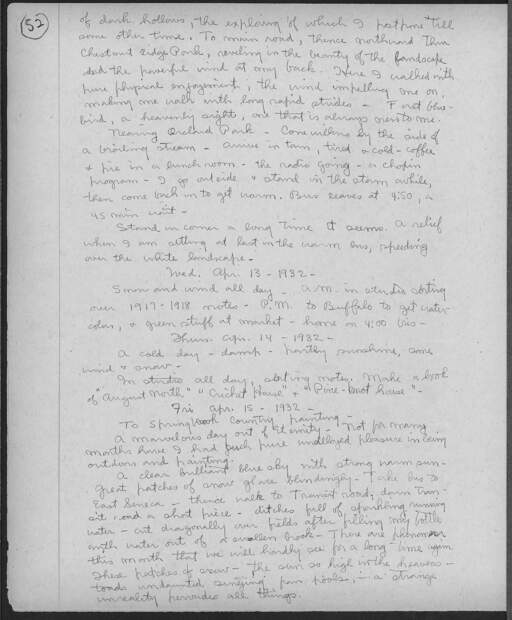 52
of dark hollows, the exploring of which I postpone 'till
some other time. To main road, thence northward thru
Chestnut Ridge Park, reveling in the beauty of the landscape
and the powerful wind at my back. Here I walked with
pure physical enjoyment, the wind impelling me on,
making me walk with long rapid strides - First blue-
bird, a heavenly sight, one that is always new to me.
Nearing Orchard Park - Come willows by the side of
a stream - arrive in town, tired & cold - coffee
& pie in a lunch room - the radio going - a Chopin
program - I go outside & stand in the storm awhile,
then come back in to get warm. Bus leaves at 4:50, a
45 min wait -
Stand in corner a long time it seems. A relief
when I am sitting at last in the warm bus, speeding
over the white landscape -
Wed. Apr. 13 - 1932 -
Snow and wind all day - A.M. in studio sorting
over 1917-1918 notes - P.M. to Buffalo to get water
color, & green stuff at market - home on 4:00 bus -
Thurs. Apr. 14 - 1932 -
A cold day - damp - partly sunshine, some
wind & snow -
In studio all day, sorting notes. Make a book
of "August North" "Cricket House" & "Pine-knot house" -
Fri Apr. 15 - 1932 -
To Springbrook Country painting -
A marvelous day out of Eternity - Not for many
months have I had such pure unalloyed pleasure in being
outdoors and painting.
A clear brilliant blue sky with strong warm sun -
Great patches of snow glare blindingly - Take bus to
East Seneca - thence walk to Transit road, down Tran-
sit road a short piece - ditches full of sparkling running
water - cut diagonally over fields after filling my bottle
with water out of a swollen brook - There are phenomena
this month that we will hardly see for a long time again
These patches of snow - the sun so high in the heavens -
toads undaunted singing from pools, - a strange
unreality pervades all things.